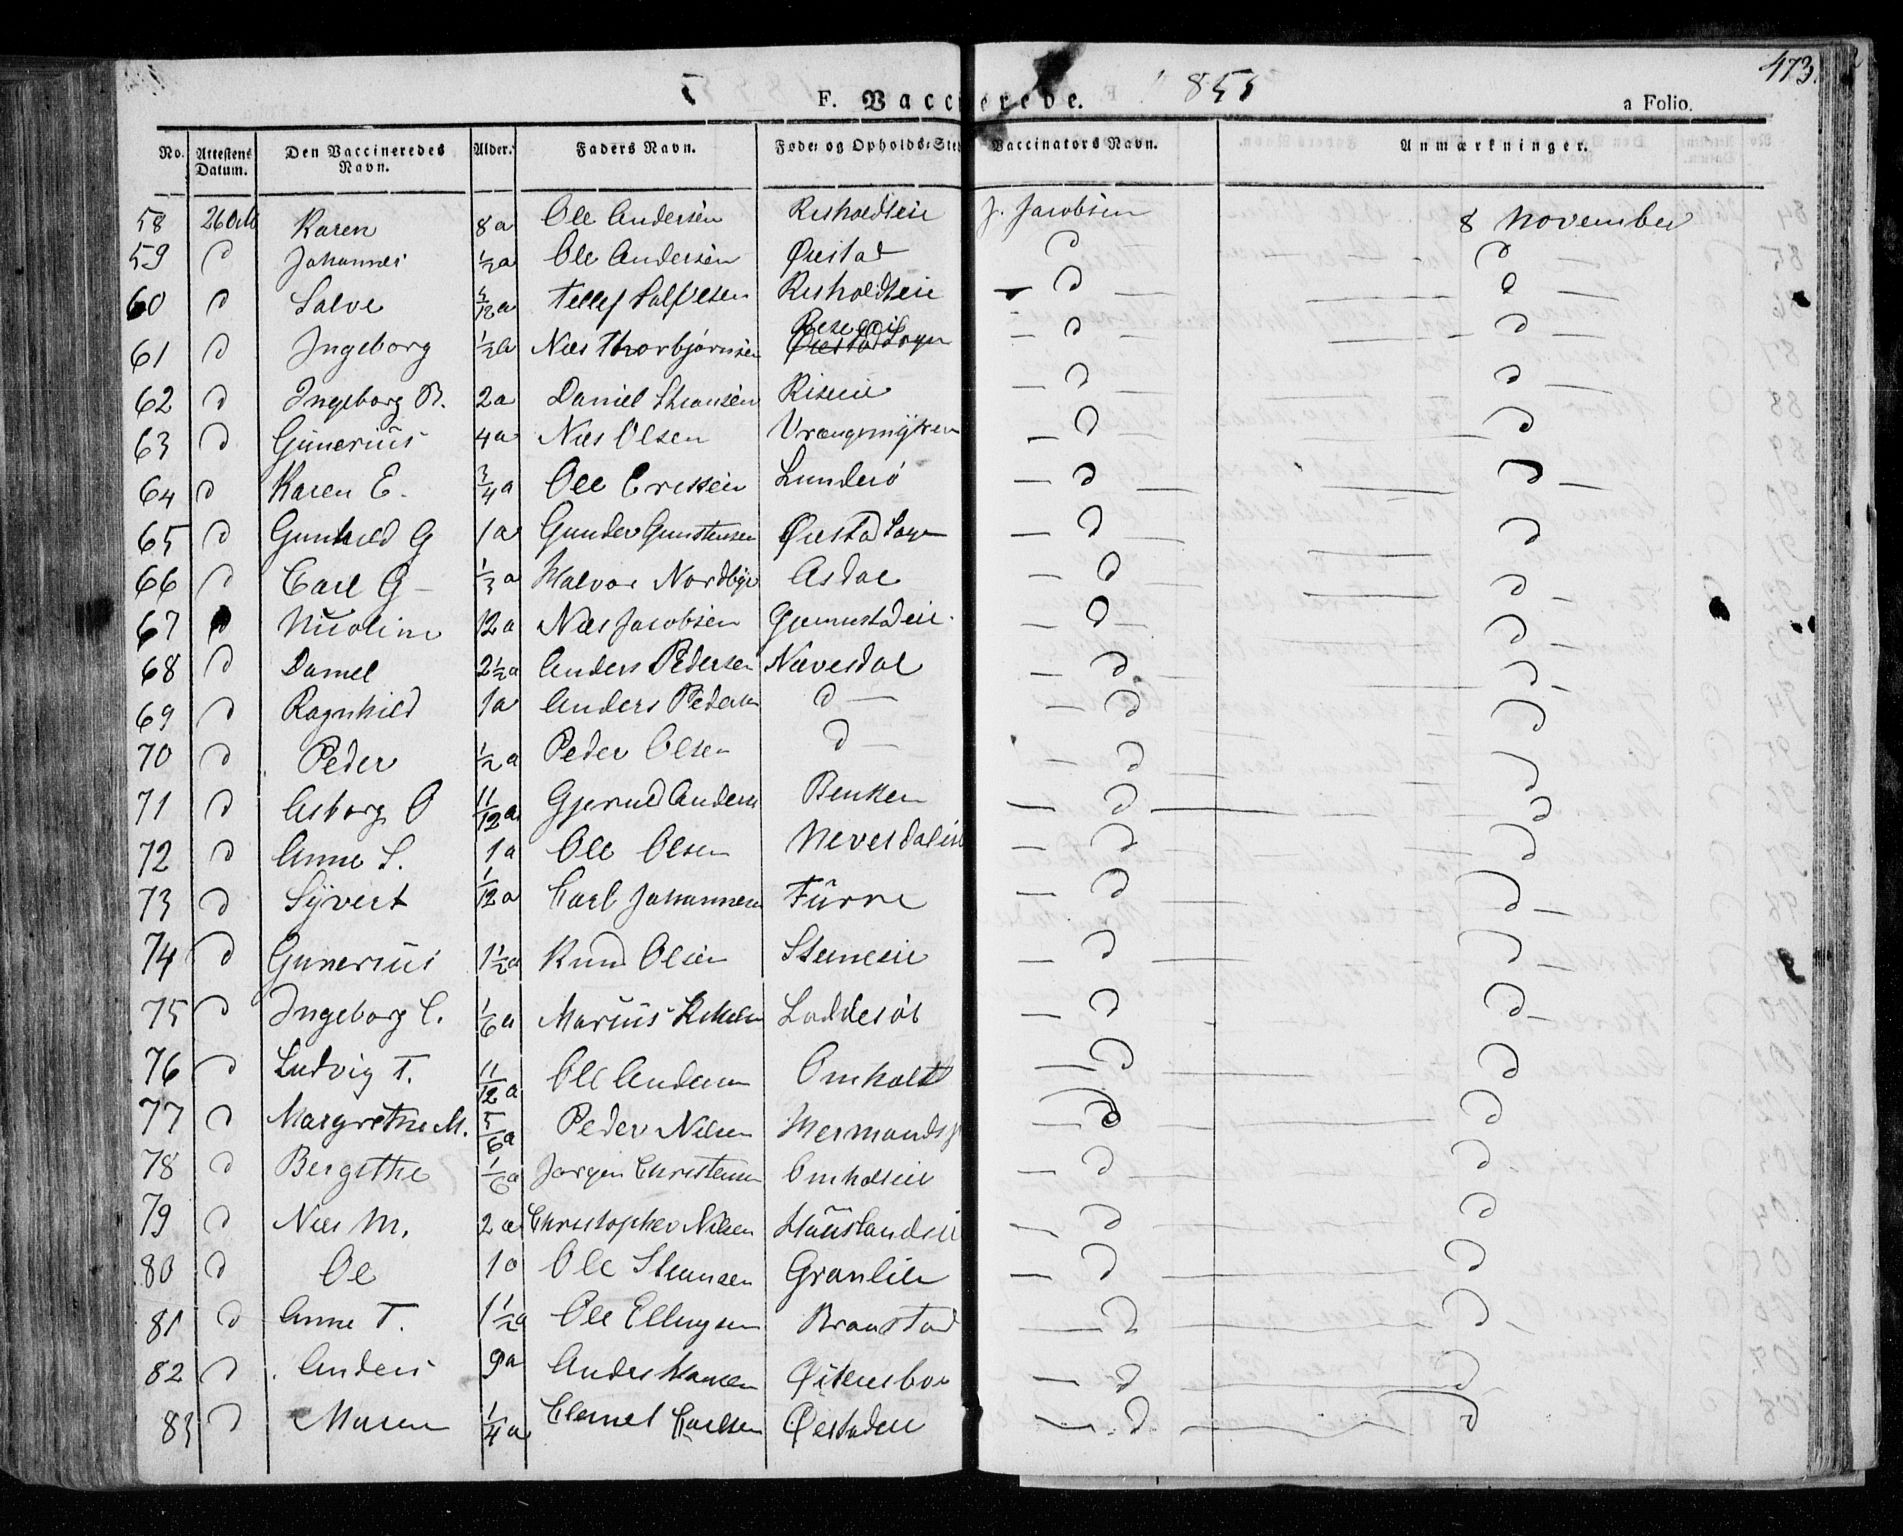 473.
F. Vaccinerede. 1851 a Folio.
No. Attestens Datum. Den Vaccineredes Navn. Alder. Faders Navn. Føde- og Opholds-Sted Vaccinators Navn. Anmærkninger.
58 26 Octb Karen 8a Ole Andersen Risholdteie J. Jacobsen 8 November
59 d Johannes ½a Ole Andersen Øiestad d d
60 d Salve 5/12a Tellef Salvesen Risholdteie — d — d —
61 d Ingeborg ½a Niels Thorbjørnsen — d — d —
62 d Ingeborg B. 2a Daniel Steansen Riseeie — d d —
63 d Gunerius 4a Niels Olsen Vrængmyren — d — d
64 d Karen E. ¾a Ole Ericksen Lundesø — d — d —
65 d Gunhild G 1a Gunder Gunstensen Øiestad Sogn — d — d
66 d Carl G — ⅓a Halvor Nordbye Asdal — d — d —
67 d Nicoline 12a Niels Jacobsen Gjennestadeie — d — d
68 d Daniel 2½a Anders Pedersen Nævesdal — d d —
69 d Ragnhild 1a Anders Pedersen d — — d — d
70 d Peder ½a Peder Olsen d — — d d
71 d Asborg O 11/12a Gjerud Anders Benken — d — d
72 d Anne S. 1a Ole Olsen Nevesdaleie — d — d
73 d Syvert 1/12a Carl Johannesen Furre — d d —
74 d Gunerius 1½a Knud Olsen Steneeie — d — d —
75 d Ingeborg C. 1/6a Marius Loddesøl — d — d —
76 d Ludvig T. 11/12a Ole Andersen Omholt — d — d
77 d Margrethe M. 5/6a Peder Nilsen d — d
78 d Bergithe 1/6a Jørgen Christensen Omholteie — d d
79 d Niels M. 2a Christopher Nilsen Hauslandseie — d — d
80 d Ole 1a Ole Steansen Granlien — d — d
81 d Anne T. 1½a Ole Ellingsen Branstad — d — d —
82 d Anders 9a Anders Hansen — d — d
83 d Maren ¼a Clemet Carlsen Øiestadeie — d — d